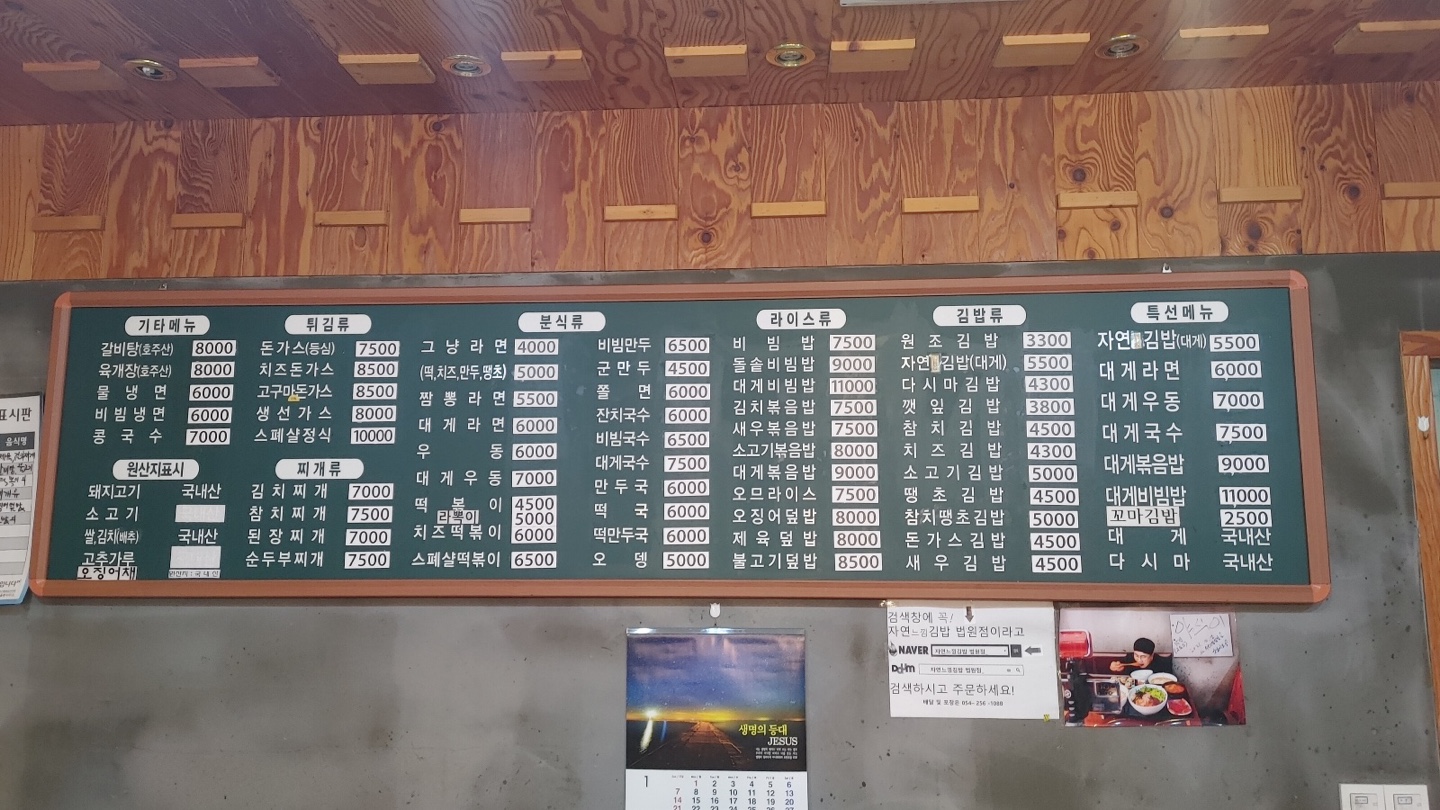 기타메뉴
갈비탕(호주산) 8000
육개장(호주산) 8000
물냉면 6000
비빔냉면 6000
콩국수 7000
원산지표시
돼지고기 국내산
소고기
쌀,김치(배추) 국내산
고추가루
오징어채 원산지:국내산
튀김류
돈가스(등심) 7500
치즈돈가스 8500
고구마돈가스 8500
생선가스 8000
스페샬정식 10000
찌개류
김치찌개 7000
참치찌개 7500
된장찌개 7000
순두부찌개 7500
분식류
그냥라면 4000
(떡,치즈,만두,땡초) 5000
짬뽕라면 5500
대게라면 6000
우동 6000
대게우동 7000
떡볶이 4500
라볶이 5000
치즈떡볶이 6000
스페샬떡볶이 6500
비빔만두 6500
군만두 4500
쫄면 6000
잔치국수 6000
비빔국수 6500
대게국수 7500
만두국 6000
떡국 6000
떡만두국 6000
오뎅 5000
라이스류
비빔밥 7500
돌솥비빔밥 9000
대게비빔밥 11000
김치볶음밥 7500
새우볶음밥 7500
소고기볶음밥 8000
대게볶음밥 9000
오므라이스 7500
오징어덮밥 8000
제육덮밥 8000
불고기덮밥 8500
김밥류
원조김밥 3300
자연 김밥(대게) 5500
다시마김밥 4300
깻잎김밥 3800
참치김밥 4500
치즈김밥 4300
소고기김밥 5000
땡초김밥 4500
참치땡초김밥 5000
돈가스김밥 4500
새우김밥 4500
특선메뉴
자연 김밥(대게) 5500
대게라면 6000
대게우동 7000
대게국수 7500
대게볶음밥 9000
대게비빔밥 11000
꼬마김밥 2500
대게 국내산
다시마 국내산
표시판
음식명
검색창에 꼭!
자연느낌김밥 법원점이라고
NAVER 자연느낌김밥 법원점
Daum 자연느낌김밥 법원점
검색하시고 주문하세요!
배달 및 포장은 054-256-1088
생명의 등대
JESUS
1
1 2 3 4 5 6
7 8 9 10 11 12 13
14 15 16 17 18 19 20